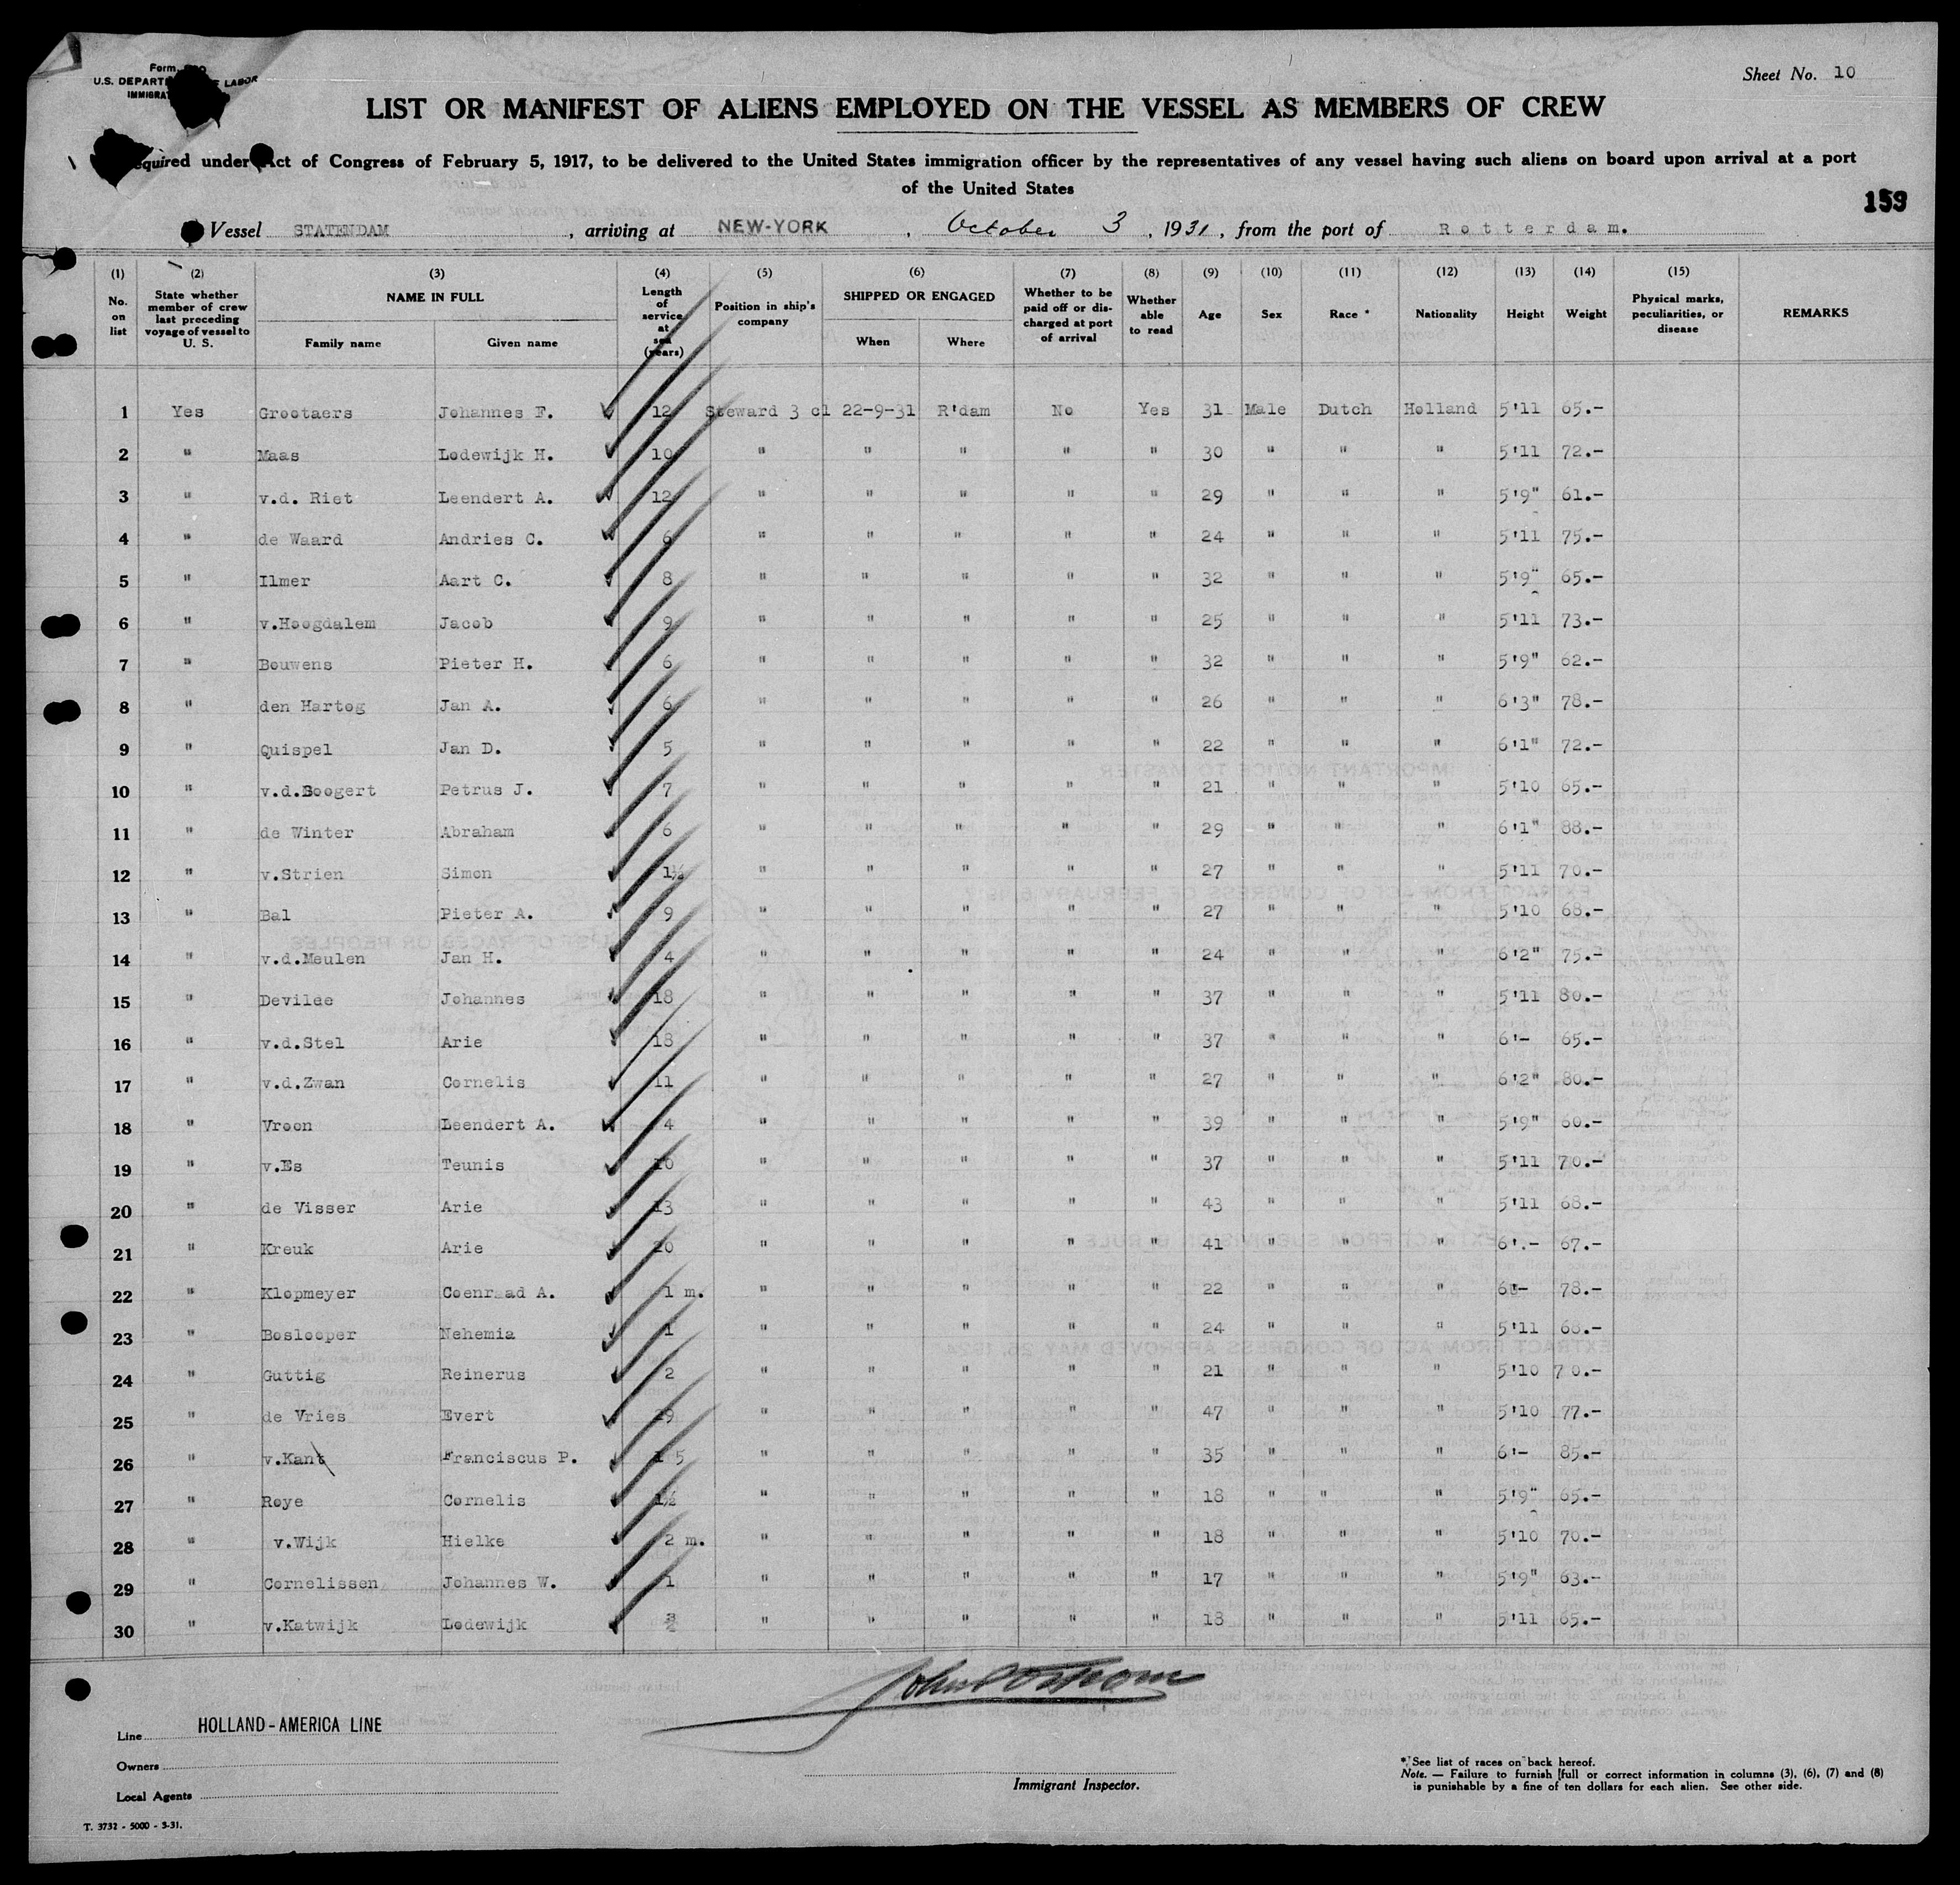 Form
U.S. DEPART LABOR
IMMIGRA
Sheet No. 10
LIST OR MANIFEST OF ALIENS EMPLOYED ON THE VESSEL AS MEMBERS OF CREW
equired under Act of Congress of February 5, 1917, to be delivered to the United States immigration officer by the representatives of any vessel having such aliens on board upon arrival at a port
of the United States
159
Vessel STATENDAM, arriving at NEW-YORK, October 3, 1931, from the port of Rotterdam.
(1) (2) (3) (4) (5) (6) (7) (8) (9) (10) (11) (12) (13) (14) (15)
No. on list
State whether member of crew last preceding voyage of vessel to U. S.
NAME IN FULL
Family name Given name
Length of service at sea (years)
Position in ship's company
SHIPPED OR ENGAGED
When Where
Whether to be paid off or discharged at port of arrival
Whether able to read
Age Sex Race * Nationality Height Weight
Physical marks, peculiarities, or disease
REMARKS
1 Yes Grootaers Johannes F. 12 Steward 3 cl 22-9-31 R'dam No Yes 31 Male Dutch Holland 5'11 65.-
2 " Maas Lodewijk H. 10 " " " " " 30 " " " 5'11 72.-
3 " v.d. Riet Leendert A. 12 " " " " " 29 " " " 5'9" 61.-
4 " de Waard Andries C. 6 " " " " " 24 " " " 5'11 75.-
5 " Ilmer Aart C. 8 " " " " " 32 " " " 5'9" 65.-
6 " v.Hoogdalem Jacob 9 " " " " " 25 " " " 5'11 73.-
7 " Bouwens Pieter H. 6 " " " " " 32 " " " 5'9" 62.-
8 " den Hartog Jan A. 6 " " " " " 26 " " " 6'3" 78.-
9 " Quispel Jan D. 5 " " " " " 22 " " " 6'1" 72.-
10 " v.d.Boogert Petrus J. 7 " " " " " 21 " " " 5'10 65.-
11 " de Winter Abraham 6 " " " " " 29 " " " 6'1" 88.-
12 " v.Strien Simon 1½ " " " " " 27 " " " 5'11 70.-
13 " Bal Pieter A. 9 " " " " " 27 " " " 5'10 68.-
14 " v.d.Meulen Jan H. 4 " " " " " 24 " " " 6'2" 75.-
15 " Devilee Johannes 18 " " " " " 37 " " " 5'11 80.-
16 " v.d.Stel Arie 18 " " " " " 37 " " " 6'- 65.-
17 " v.d.Zwan Cornelis 11 " " " " " 27 " " " 6'2" 80.-
18 " Vroon Leendert A. 4 " " " " " 39 " " " 5'9" 60.-
19 " v.Es Teunis 10 " " " " " 37 " " " 5'11 70.-
20 " de Visser Arie 13 " " " " " 43 " " " 5'11 68.-
21 " Kreuk Arie 20 " " " " " 41 " " " 6'.- 67.-
22 " Klopmeyer Coenraad A. 1 m. " " " " " 22 " " " 6'- 78.-
23 " Boslooper Nehemia 1 " " " " " 24 " " " 5'11 68.-
24 " Guttig Reinerus 2 " " " " " 21 " " " 5'10 70.-
25 " de Vries Evert 29 " " " " " 47 " " " 5'10 77.-
26 " v.Kant Franciscus P. 15 " " " " " 35 " " " 6'- 85.-
27 " Roye Cornelis 1½ " " " " " 18 " " " 5'9" 65.-
28 " v.Wijk Hielke 2 m. " " " " " 18 " " " 5'10 70.-
29 " Cornelissen Johannes W. 1 " " " " " 17 " " " 5'9" 63.-
30 " v.Katwijk Lodewijk " " " " " 18 " " " 5'11 65.-
Line HOLLAND-AMERICA LINE
Owners
Local Agents
Immigrant Inspector.
* See list of races on back hereof.
Note. — Failure to furnish full or correct information in columns (3), (6), (7) and (8)
is punishable by a fine of ten dollars for each alien. See other side.
T. 3732 - 5000 - 3-31.